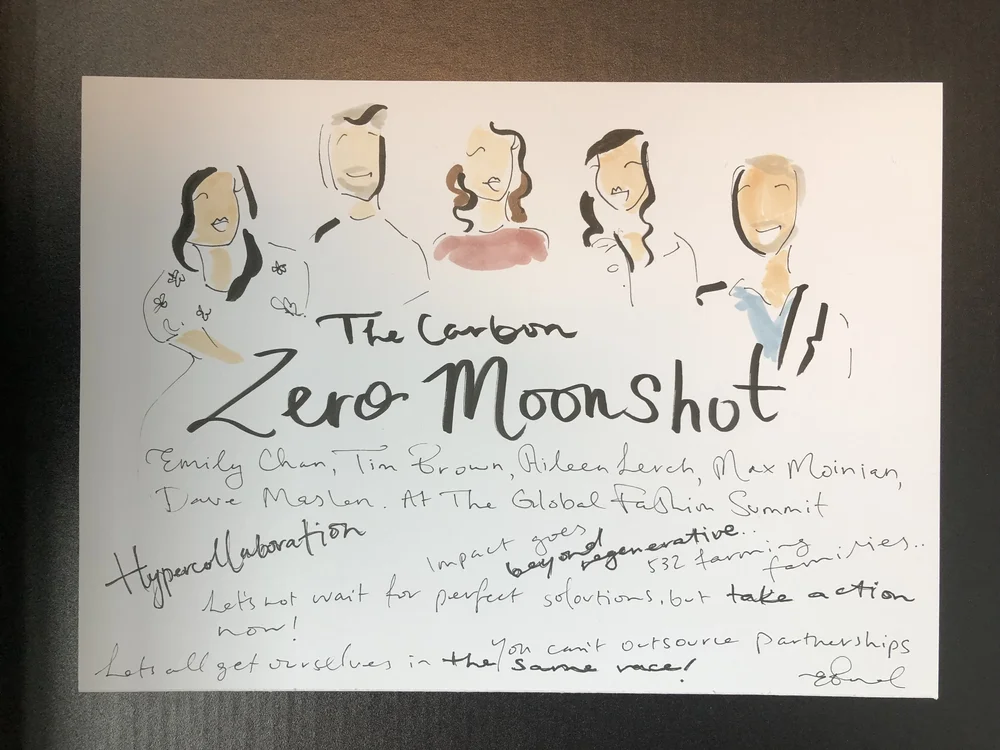 The Carbon
Zero Moonshot
Emily Chan, Tim Brown, Aileen Lerch, Max Moinian,
Dave Maslen. At The Global Fashion Summit
Hypercollaboration
Impact goes
beyond regenerative..
532 farming
families..
Let's not wait for perfect soloutions, but take action
now!
You can't outsource partnerships
Lets all get ourselves in the same race!